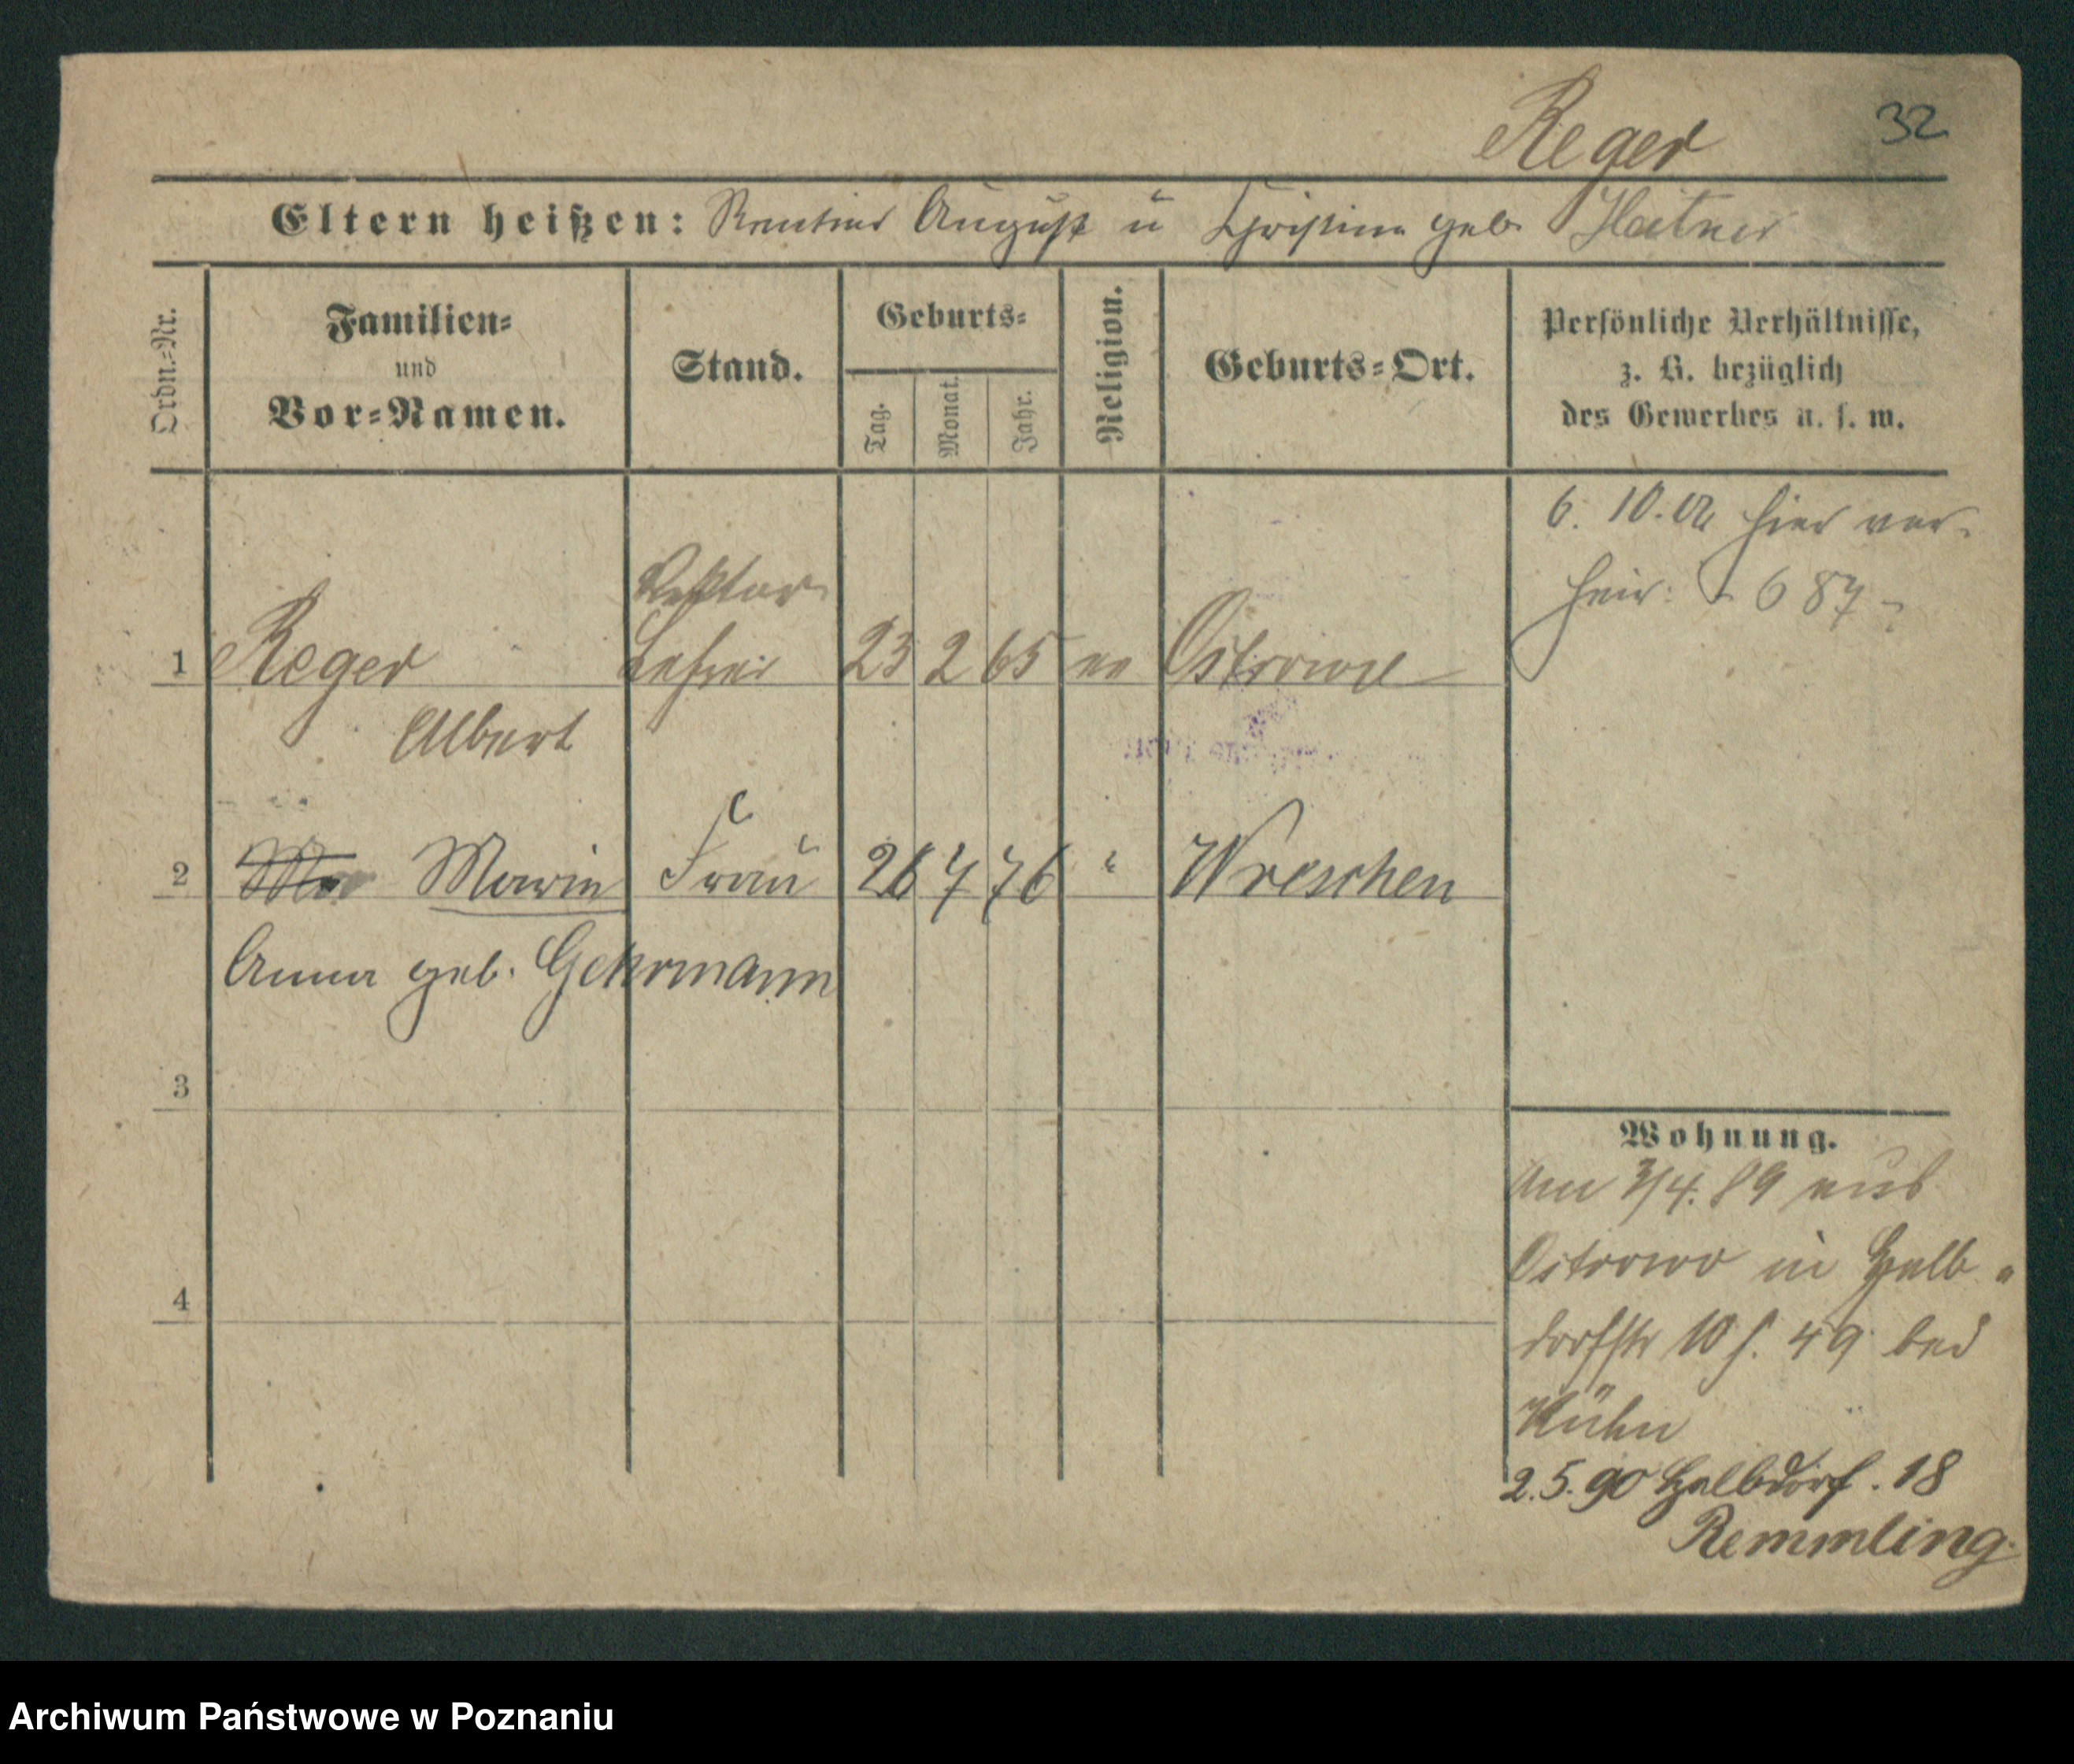 Reger 32
Eltern heißen: Rentier August u Christina geb. Haitner
Ordn.=Nr.
Familien=
und
Vor=Namen.
Stand.
Geburts=
Tag.
Monat.
Jahr.
Religion.
Geburts=Ort.
Persönliche Verhältnisse,
z. B. bezüglich
des Gewerbes u. s. w.
6. 10. hier ver-
heir: 687
Rektor
1 Reger Lehrer 23 2 65 ev Ostrowo
Albert
2 Marie Frau 26 7 76 " Wreschen
Anna geb. Gehrmann
3
4
Wohnung.
Am 3/4. 89 aus
Ostrowo in Halb-
dorfstr 10 49 bei
Kühn
2.5.90 Halbdorf. 18
Remmling.
Archiwum Państwowe w Poznaniu